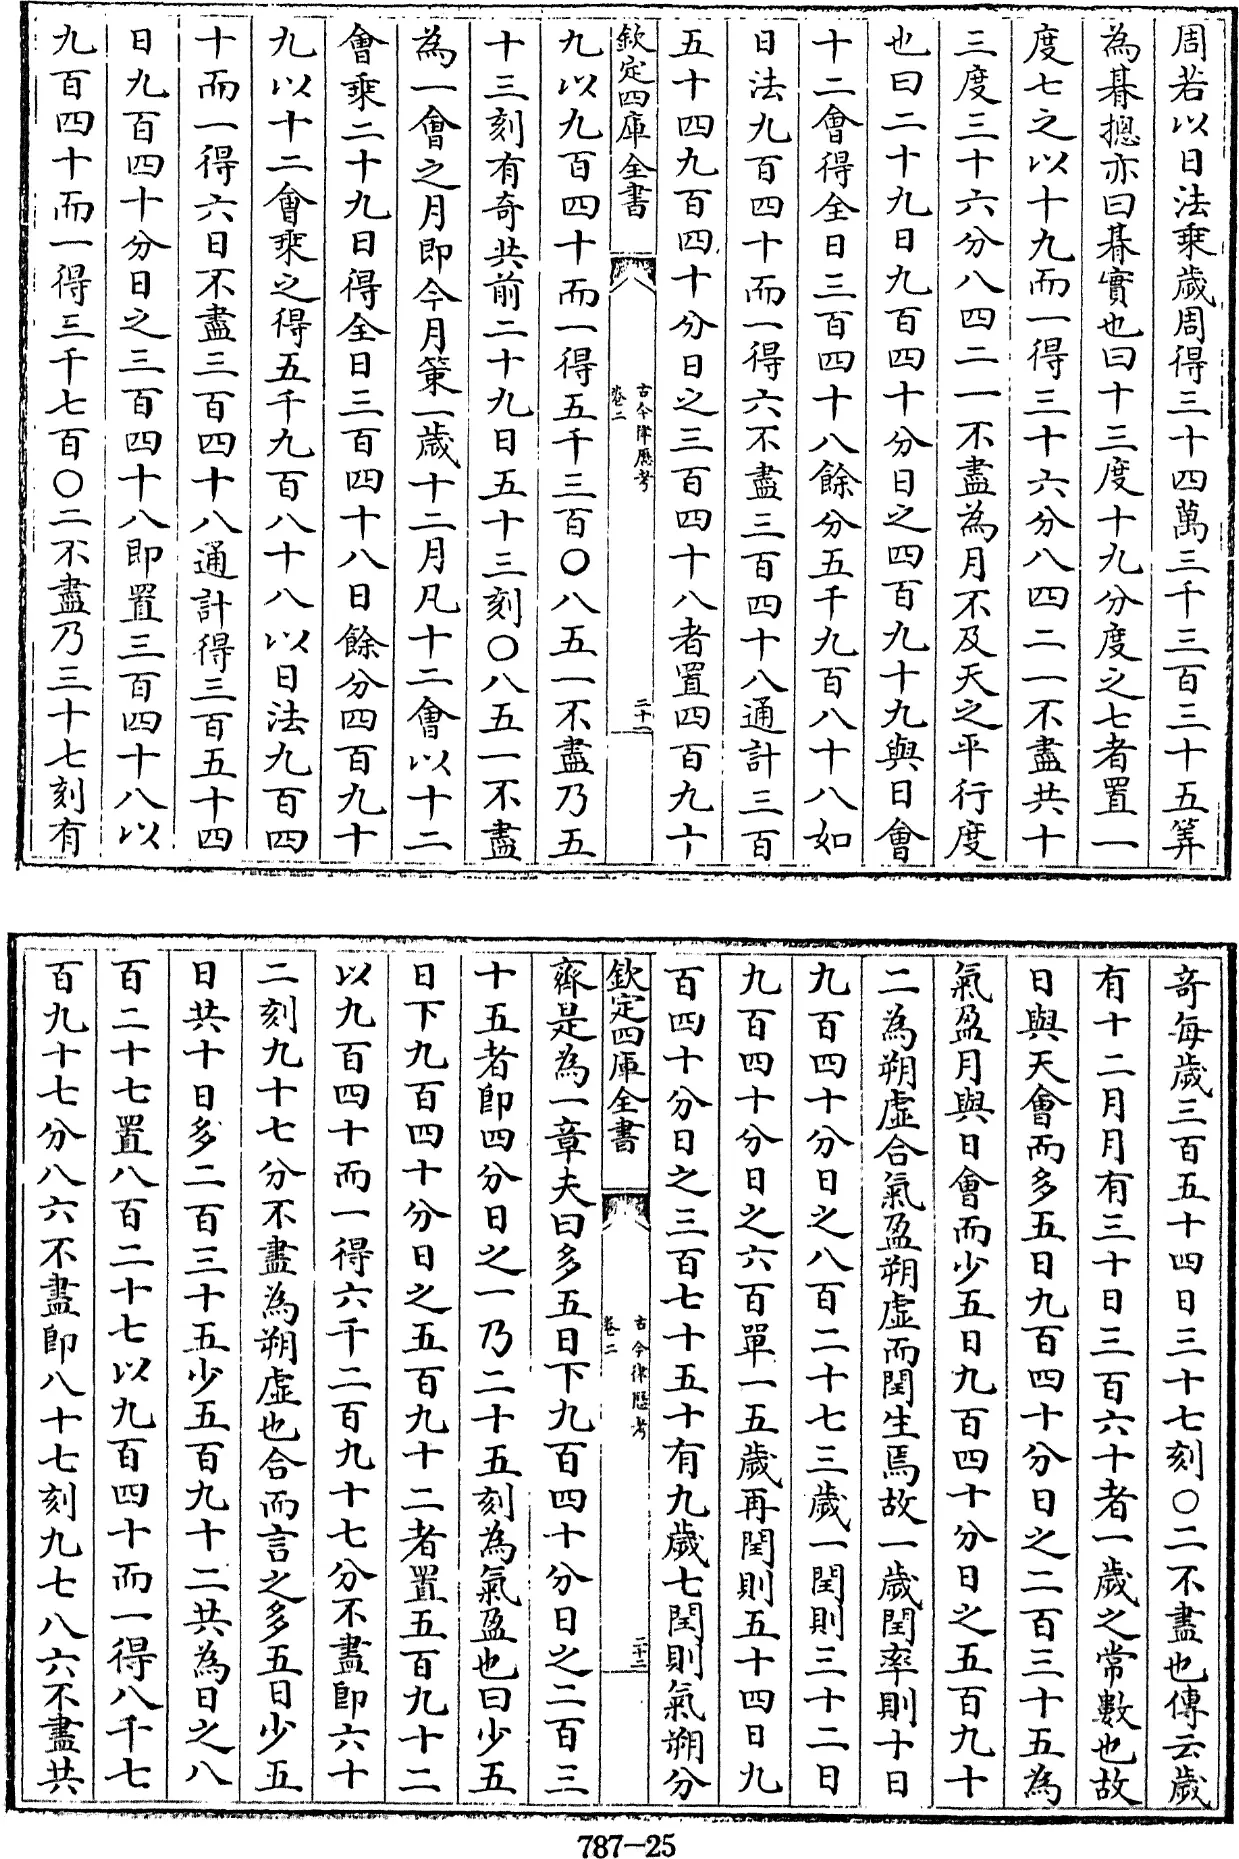 周若以日法乗歲周得三十四萬三千三百三十五筭
為朞摠亦曰朞實也曰十三度十九分度之七者置一
度七之以十九而一得三十六分八四二一不盡共十
三度三十六分八四二一不盡為月不及天之平行度
也曰二十九日九百四十分日之四百九十九與日會
十二會得全日三百四十八餘分五千九百八十八如
日法九百四十而一得六不盡三百四十八通計三百
五十四九百四十分日之三百四十八者置四百九十
欽定四庫全書
古今律歷考
卷二
二十一
九以九百四十而一得五千三百〇八五一不盡乃五
十三刻有奇共前二十九日五十三刻〇八五一不盡
為一會之月即今月策一歲十二月凡十二會以十二
會乗二十九日得全日三百四十八日餘分四百九十
九以十二會乗之得五千九百八十八以日法九百四
十而一得六日不盡三百四十八通計得三百五十四
日九百四十分日之三百四十八即置三百四十八以
九百四十而一得三千七百〇二不盡乃三十七刻有
奇每歲三百五十四日三十七刻〇二不盡也傳云歲
有十二月月有三十日三百六十者一歲之常數也故
日與天會而多五日九百四十分日之二百三十五為
氣盈月與日會而少五日九百四十分日之五百九十
二為朔虛合氣盈朔虛而閏生焉故一歲閏率則十日
九百四十分日之八百二十七三歲一閏則三十二日
九百四十分日之六百單一五歲再閏則五十四日九
百四十分日之三百七十五十有九歲七閏則氣朔分
欽定四庫全書
古今律歷考
卷二
二十二
齊是為一章夫曰多五日下九百四十分日之二百三
十五者卽四分日之一乃二十五刻為氣盈也曰少五
日下九百四十分日之五百九十二者置五百九十二
以九百四十而一得六千二百九十七分不盡卽六十
二刻九十七分不盡為朔虛也合而言之多五日少五
日共十日多二百三十五少五百九十二共為日之八
百二十七置八百二十七以九百四十而一得八千七
百九十七分八六不盡卽八十七刻九七八六不盡共
787—25